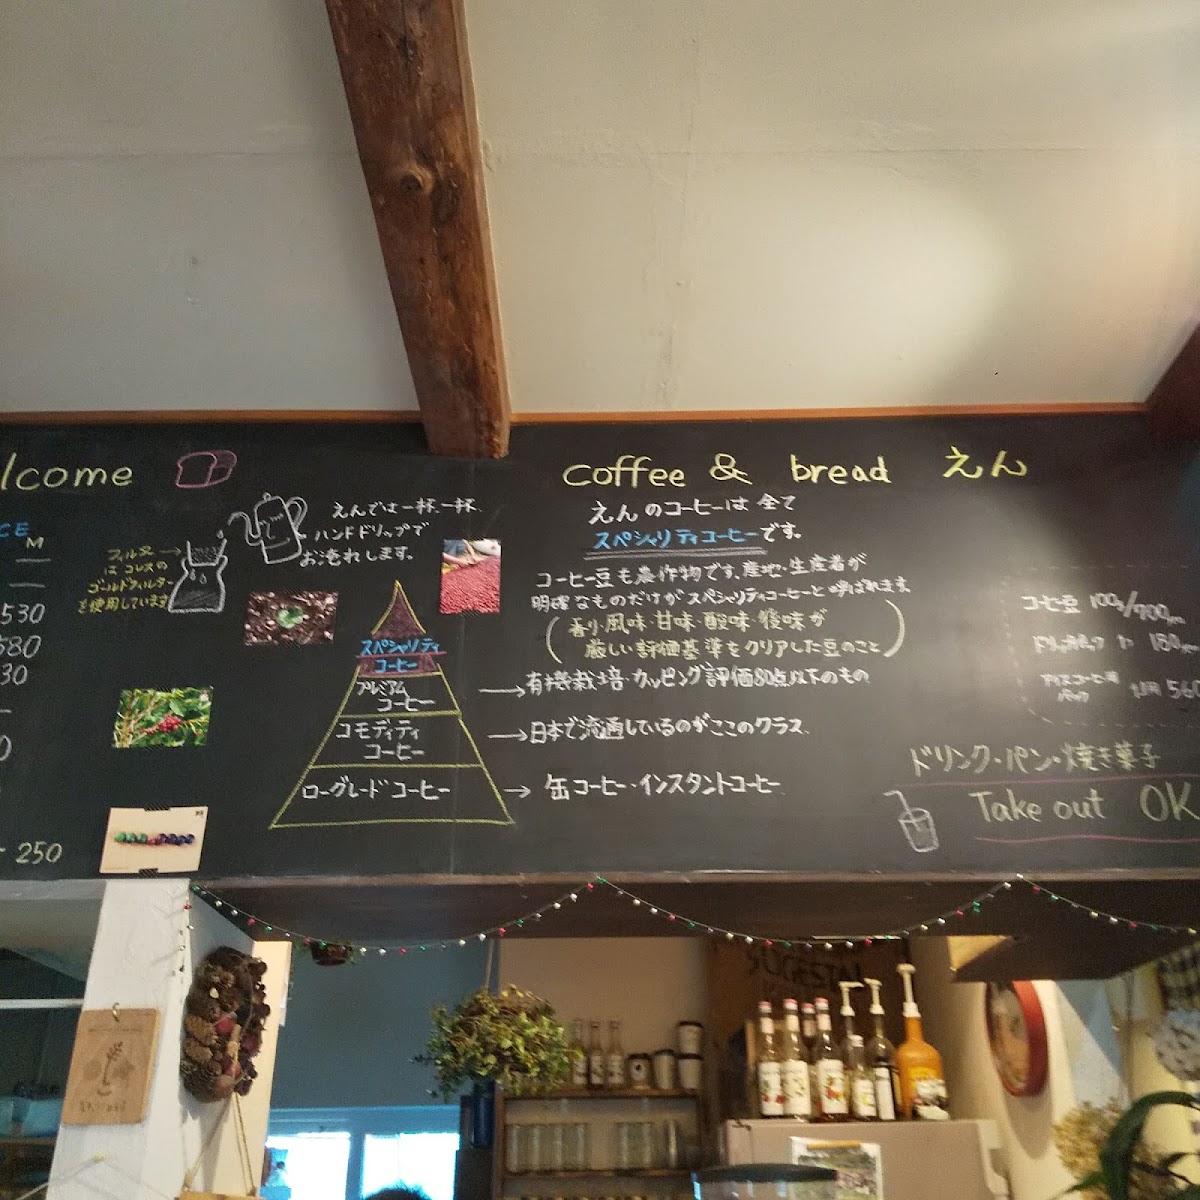 lcome
coffee & bread えん
CE
M
530
580
30
0
250
フィルター→
は コレスの
ゴールドフィルター
を使用しています
えんでは一杯、一杯、
ハンドドリップで
お淹れします。
えんのコーヒーは全て
スペシャリティコーヒーです。
コーヒー豆も農作物です。産地・生産者が
明確なものだけがスペシャリティコーヒーと呼ばれます。
(香り・風味・甘味・酸味・後味が
厳しい評価基準をクリアした豆のこと)
スペシャリティ
コーヒー
プレミアム
コーヒー
→有機栽培・カッピング評価80点以下のもの
コモディティ
コーヒー
→日本で流通しているのがここのクラス.
ローグレードコーヒー
→ 缶コーヒー・インスタントコーヒー
コーヒー豆 100g/700
ドリップパック 180
アイスコーヒー用
パック 560
ドリンク・パン・焼き菓子
Take out OK